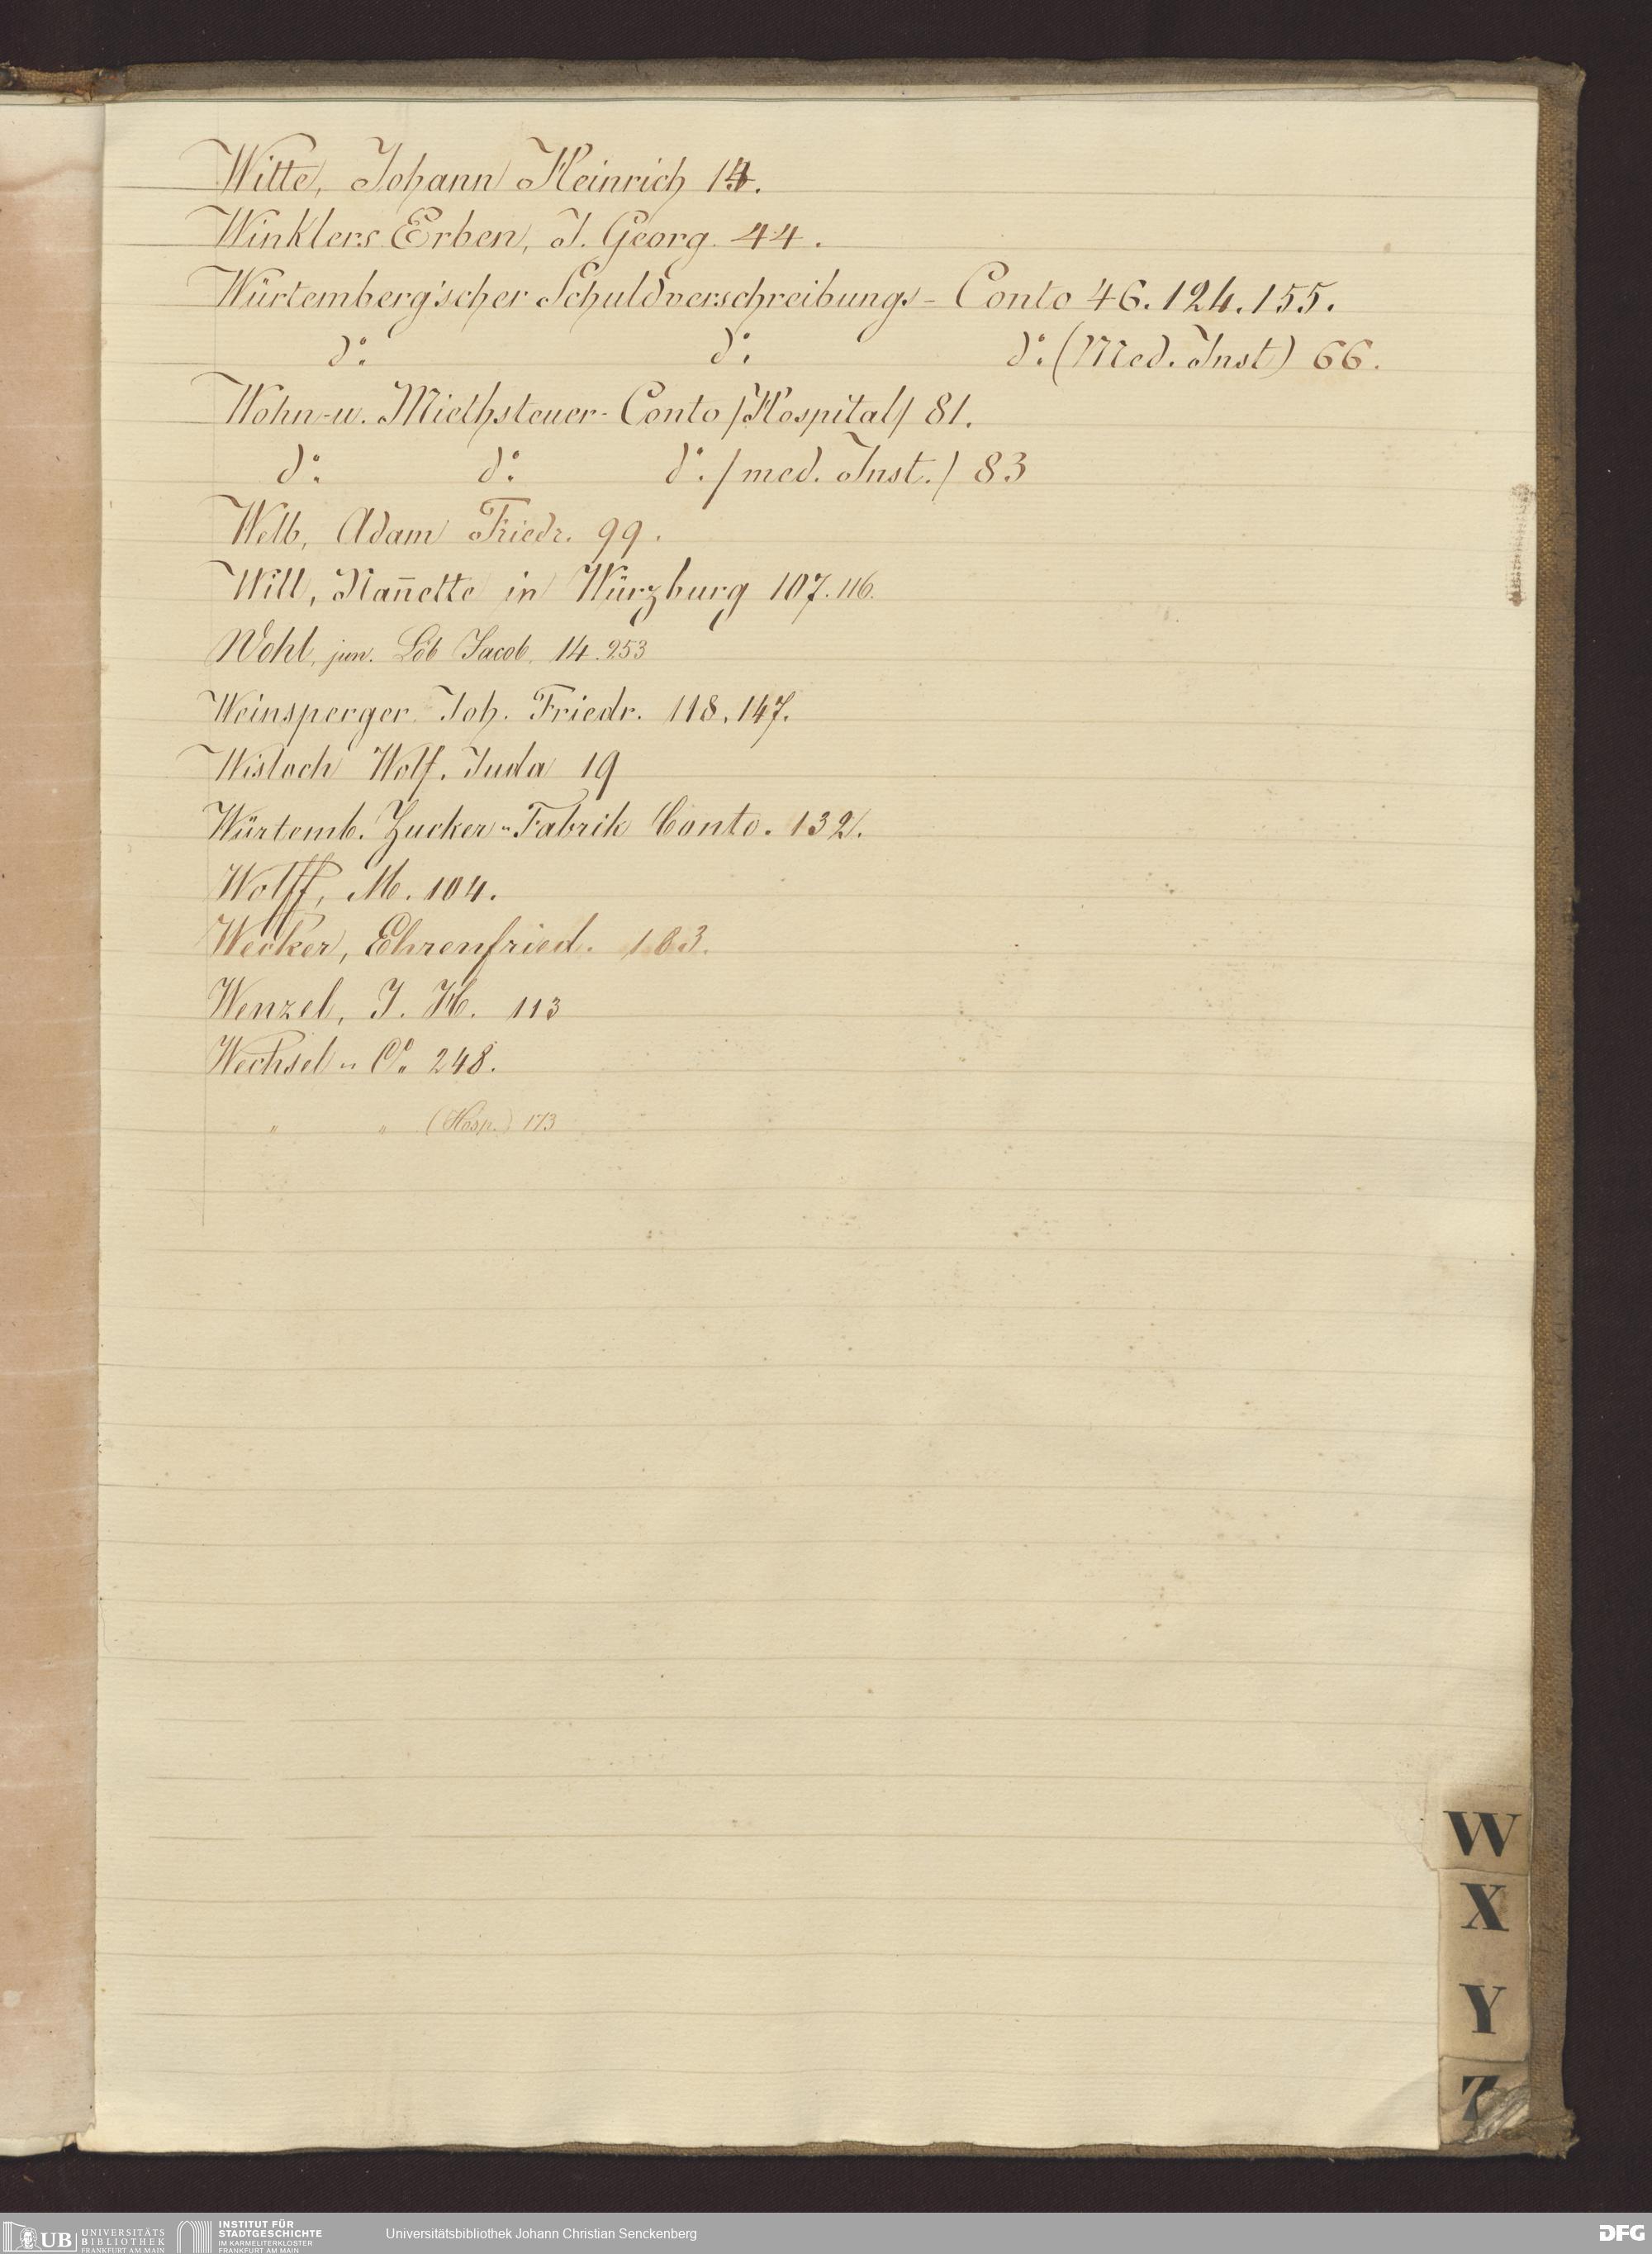 Witte, Johann Heinrich 14.
Winklers Erben, J. Georg. 44.
Würtemberg'scher Schuldverschreibungs- Conto 46. 124. 155.
do. do. do. (Med. Inst) 66.
Wohn- u. Miethsteuer- Conto /Hospital/ 81.
do. do. do. /med. Inst./ 83
Welb, Adam Friedr. 99.
Will, Nan̄ette in Würzburg 107. 116.
Wohl, jun. Löb Jacob, 14. 253
Weinsperger Joh. Friedr. 118. 147.
Wisloch Wolf. Juda 19
Würtemb. Zucker-Fabrik Conto. 132.
Wolff, M. 104.
Wecker, Ehrenfried. 103.
Wenzel, J. H. 113
Wechsel - Co. 248.
" " (Hosp.) 173
W
X
Y
Z
UB UNIVERSITÄTS BIBLIOTHEK FRANKFURT AM MAIN
INSTITUT FÜR STADTGESCHICHTE IM KARMELITERKLOSTER FRANKFURT AM MAIN
Universitätsbibliothek Johann Christian Senckenberg
DFG